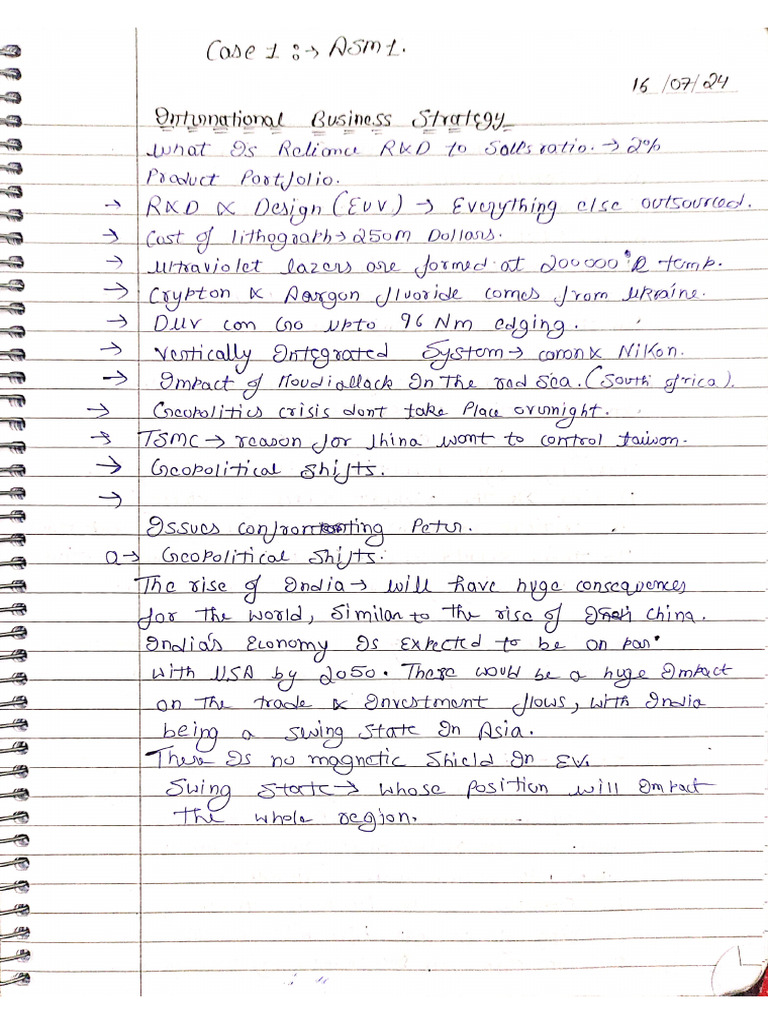 Case 1 :→ ASM1.
16/07/24
International Business Strategy
What Is Reliance R&D to Sales ratio. → 2%
Product Portfolio.
→ R&D & Design (EUV) → Everything else outsourced.
→ Cost of lithograph → 250M Dollars.
→ Ultraviolet lazers are formed at 200000°R temp.
→ Crypton & Aargon fluoride comes from Ukraine.
→ DUV can Go upto 96 Nm edging.
→ Vertically Integrated System → canon & Nikon.
→ Impact of Houdiattack In The red sea. (South Africa).
→ Geopolitics crisis dont take Place overnight.
→ TSMC → reason for China want to control taiwan.
→ Geopolitical Shifts.
→
Issues confronting Peter.
a → Geopolitical Shifts.
The rise of India → will have huge consequences
for the world, Similar to the rise of China.
India's Economy Is Expected to be on par
with USA by 2050. There would be a huge Impact
on the trade & Investment flows, with India
being a swing state In Asia.
There Is no magnetic Shield In EV.
Swing State → whose position will Impact
the whole region.